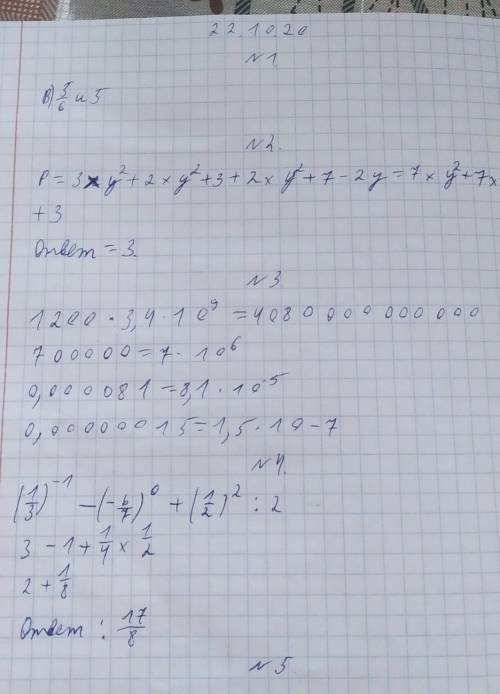 22.10.20
№1
В) 5/6 и 5
№2.
P = 3xy² + 2xy² + 3 + 2xy² + 7 - 2y = 7xy² + 7x
+ 3
Ответ = 3.
№3
1200 · 3,4 · 10⁹ = 4080000000000
700000 = 7 · 10⁶
0,000081 = 8,1 · 10⁻⁵
0,00000015 = 1,5 · 10 - 7
№4.
(1/3)⁻¹ - (-6/7)⁰ + (1/2)² : 2
3 - 1 + 1/4 × 1/2
2 + 1/8
Ответ : 17/8
№5.